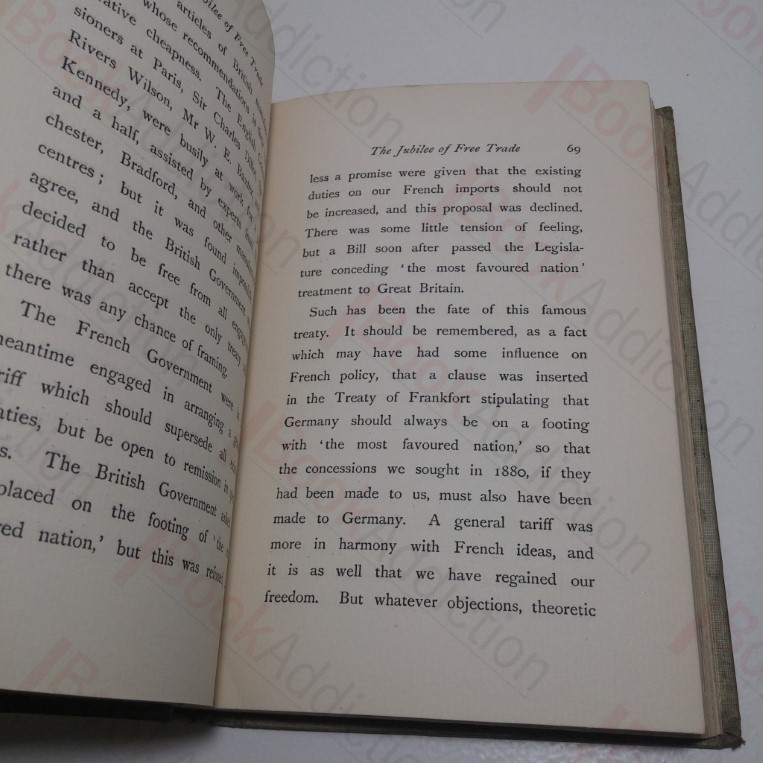 Jubilee of Free Trade
articles of British
whose recommendations
rative cheapness. The English
sioners at Paris, Sir Charles
Rivers Wilson, Mr W. E.
Kennedy, were busily at work,
and a half, assisted by experts
chester, Bradford, and other
centres; but it was found
agree, and the British Government
decided to be free from all
rather than accept the only treaty
there was any chance of framing.
The French Government were
meantime engaged in arranging a
riff which should supersede all
aties, but be open to remission in
s. The British Government
placed on the footing of 'the
red nation,' but this was refused
The Jubilee of Free Trade 69
less a promise were given that the existing
duties on our French imports should not
be increased, and this proposal was declined.
There was some little tension of feeling,
but a Bill soon after passed the Legisla-
ture conceding 'the most favoured nation'
treatment to Great Britain.
Such has been the fate of this famous
treaty. It should be remembered, as a fact
which may have had some influence on
French policy, that a clause was inserted
in the Treaty of Frankfort stipulating that
Germany should always be on a footing
with 'the most favoured nation,' so that
the concessions we sought in 1880, if they
had been made to us, must also have been
made to Germany. A general tariff was
more in harmony with French ideas, and
it is as well that we have regained our
freedom. But whatever objections, theoretic
BookAddiction